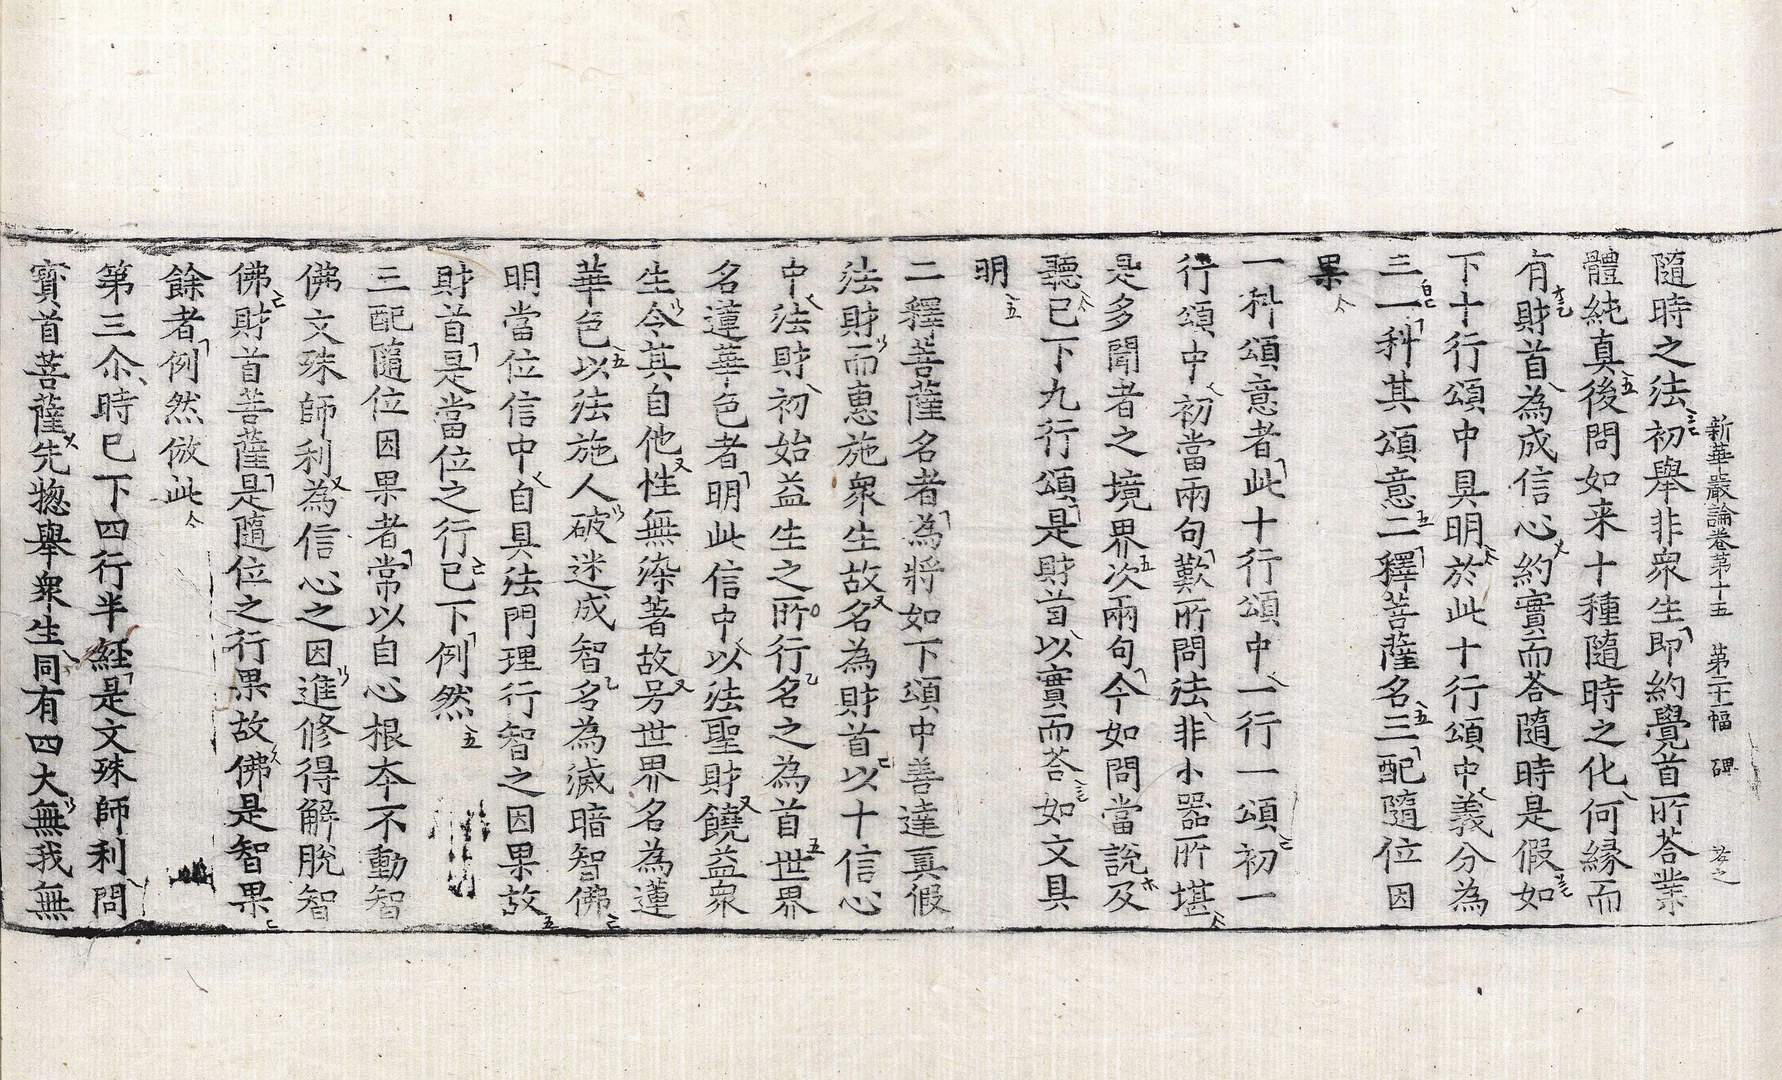 新華嚴論卷第十五 第二十二幅 碑
隨時之法初舉非衆生即約覺首所荅業
體純真後問如来十種隨時之化何縁而
有財首為成信心約實而荅隨時是假如
下十行頌中具明於此十行頌中義分為
三一科其頌意二釋菩薩名三配隨位因
果
一科頌意者此十行頌中一行一頌初一
行頌中初當兩句歎所問法非小器所堪
是多聞者之境界次兩句今如問當說及
聽已下九行頌是財首以實而荅如文具
明
二釋菩薩名者為將如下頌中善達真假
法財而惠施衆生故名為財首以十信心
中法財初始益生之所行名之為首世界
名蓮華色者明此信中以法聖財饒益衆
生令其自他性無染著故号世界名為蓮
華色以法施人破迷成智名為滅暗智佛
明當位信中自具法門理行智之因果故
財首是當位之行已下例然
三配隨位因果者常以自心根夲不動智
佛文殊師利為信心之因進修得解脫智
佛財首菩薩是隨位之行果故佛是智果
餘者例然倣此
第三尒時已下四行半経是文殊師利問
寳首菩薩先揔舉衆生同有四大無我無